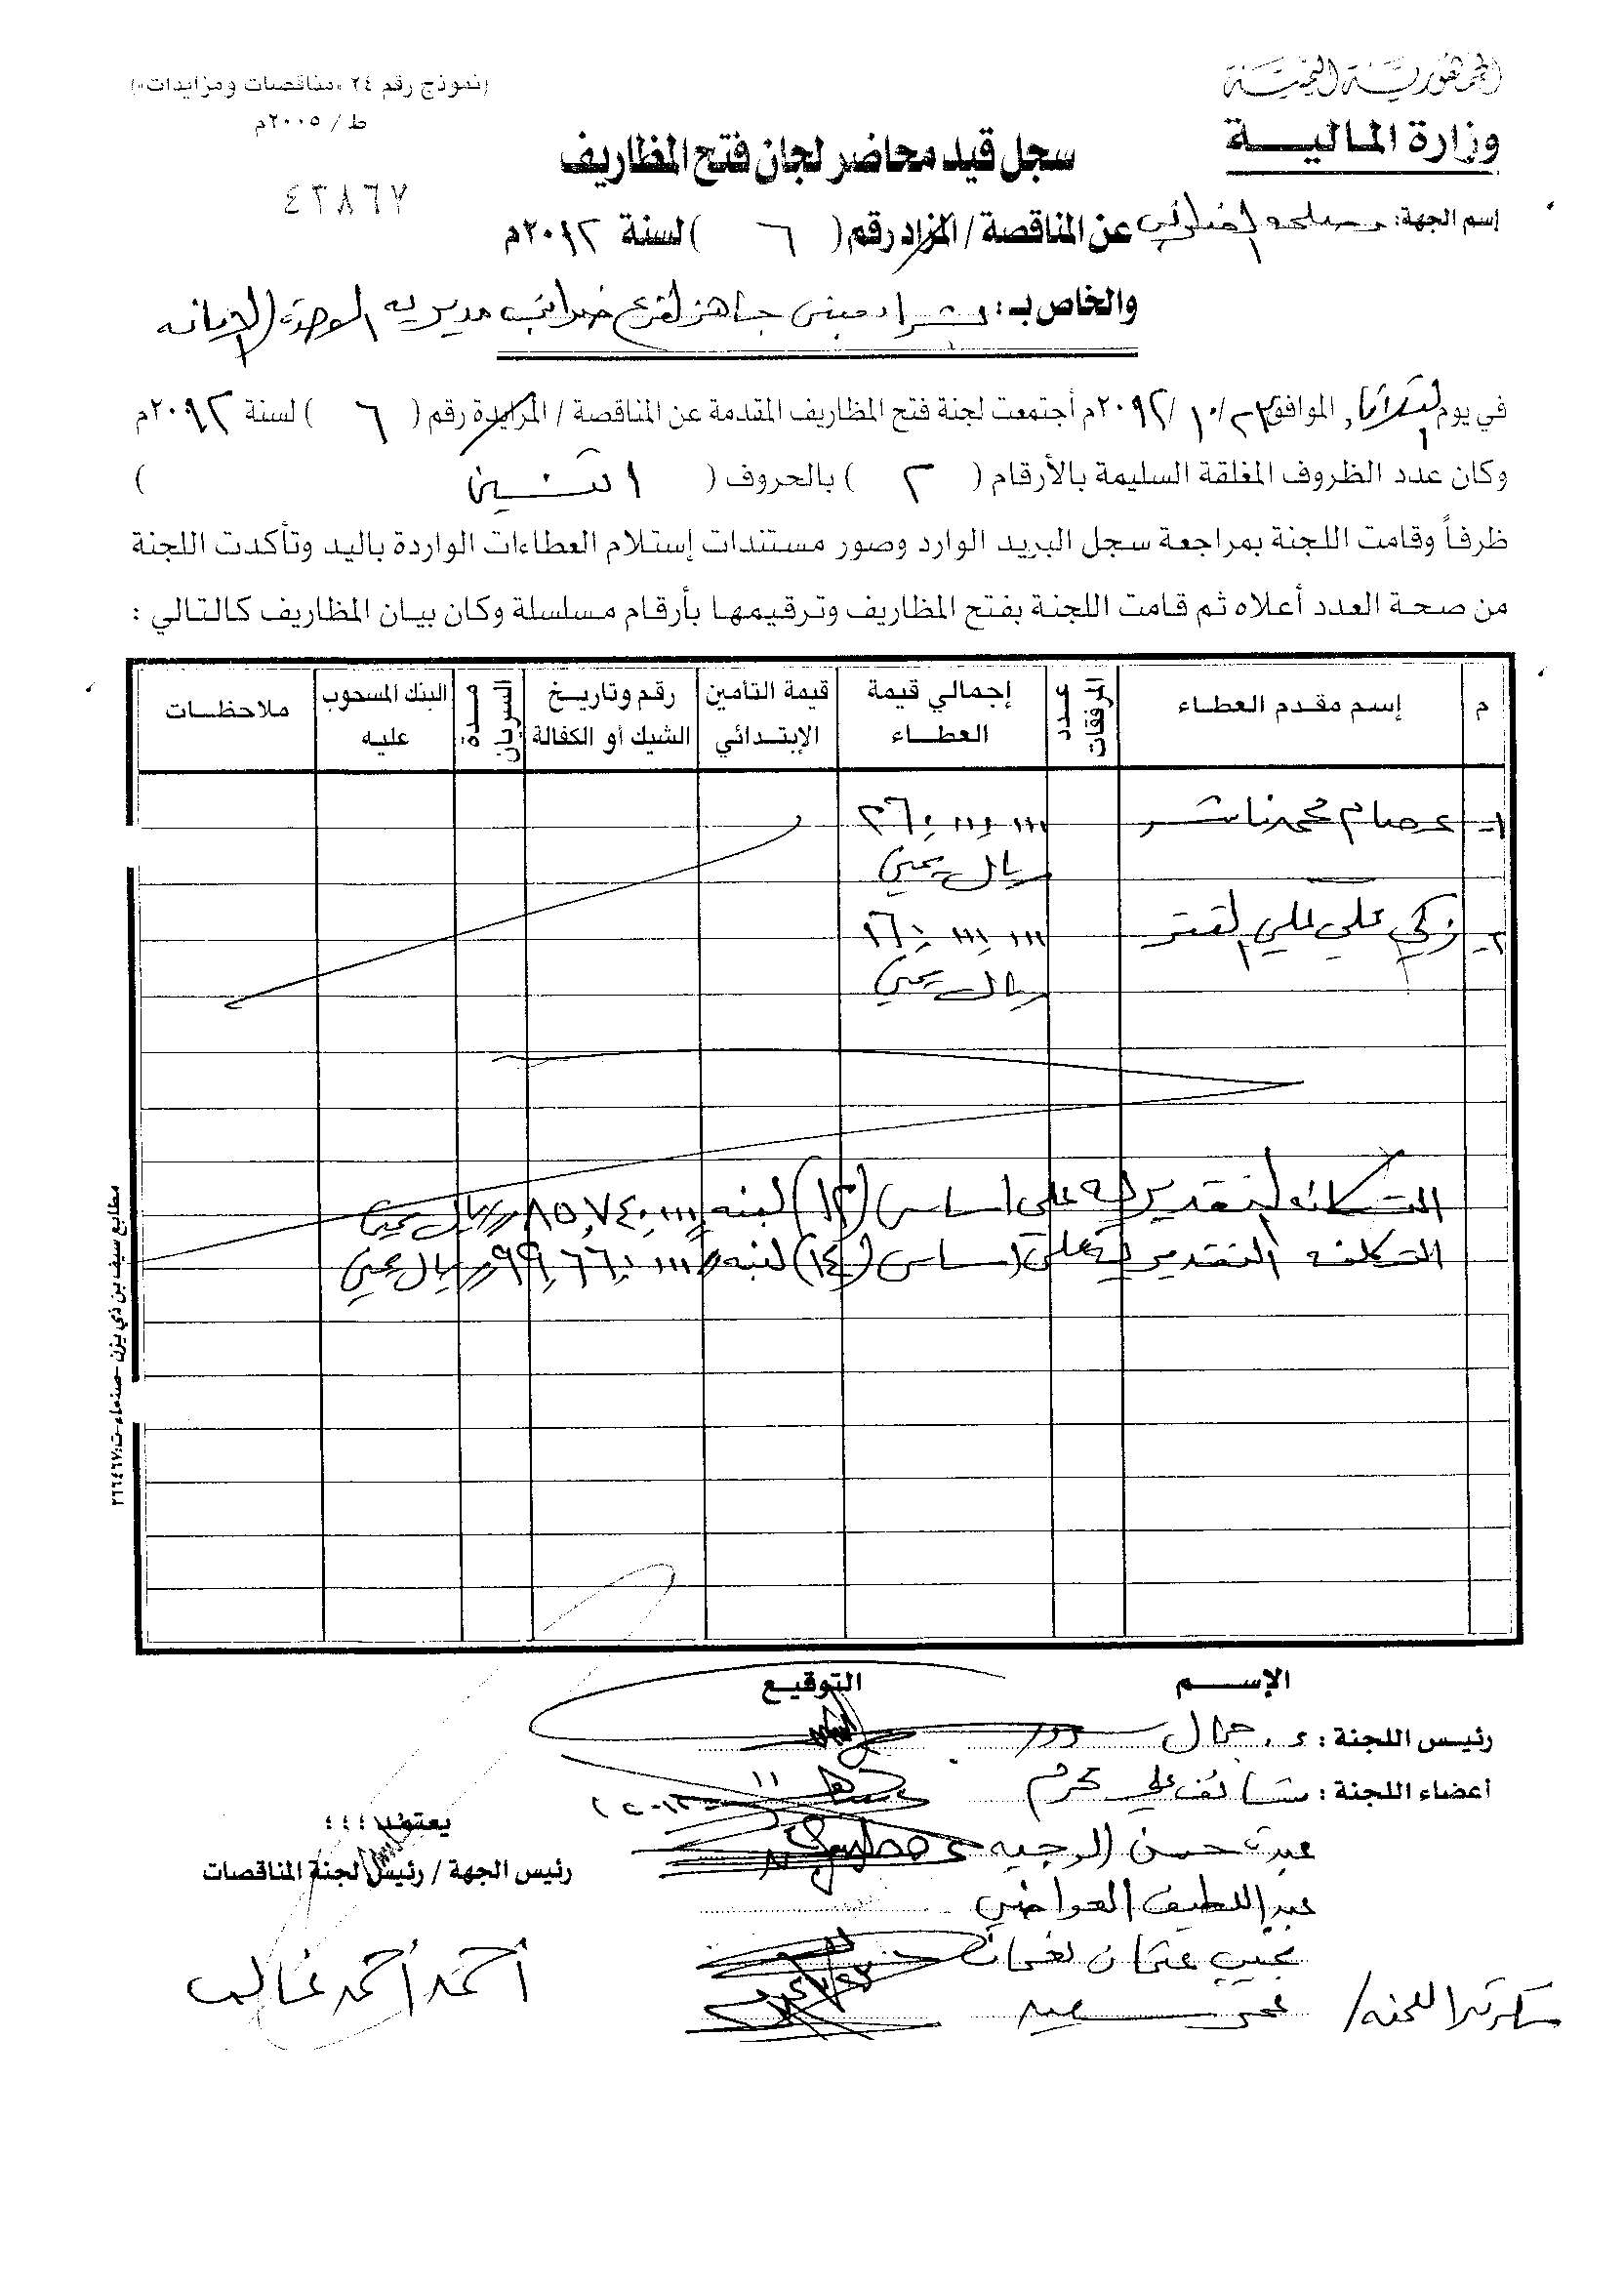 الجمهورية اليمنية
وزارة المالية
(نموذج رقم ٢٤ «مناقصات ومزايدات»)
ط / ٢٠٠٥م
سجل قيد محاضر لجان فتح المظاريف
٤٣٨٦٧
إسم الجهة: مصلحة الضرائب
عن المناقصة / المزاد رقم ( ٦ ) لسنة ٢٠١٢م
والخاص بـ: شراء مبنى جاهز لفرع ضرائب مديرية الوحدة الامانه
في يوم الثلاثاء الموافق ٢٣/١٠/٢٠١٢م أجتمعت لجنة فتح المظاريف المقدمة عن المناقصة / المزايدة رقم ( ٦ ) لسنة ٢٠١٢م
وكان عدد الظروف المغلقة السليمة بالأرقام ( ٢ ) بالحروف ( اثنين )
ظرفاً وقامت اللجنة بمراجعة سجل البريد الوارد وصور مستندات إستلام العطاءات الواردة باليد وتأكدت اللجنة
من صحة العدد أعلاه ثم قامت اللجنة بفتح المظاريف وترقيمها بأرقام مسلسلة وكان بيان المظاريف كالتالي :
م إسم مقدم العطاء عدد المرفقات إجمالي قيمة العطاء قيمة التأمين الإبتدائي رقم وتاريخ الشيك أو الكفالة مدة السريان البنك المسحوب عليه ملاحظات
١- عصام محمد ناشر ٢٦٠,٠٠٠,٠٠٠
ريال يمني
٢- زكي علي علي ١٦٠,٠٠٠,٠٠٠
ريال يمني
التكلفه التقديريه على اساس (١٢) لبنه ٨٥,٧٤٠,٠٠٠ ريال يمني
التكلفه التقديرية على اساس (١٤) لبنه ٩٩,٦٦٠,٠٠٠ ريال يمني
مطابع سيف بن ذي يزن - صنعاء - ت: ٢٦٦٤٦٧
الإســم التوقيع
رئيس اللجنة : د. جمال سرور
أعضاء اللجنة : شائف علي محرم
عبده حسن الوجيه
عبداللطيف العواضي
نجيب عثمان نعمان
سكرتير اللجنه/ سعيد
يعتمد ؛؛؛
رئيس الجهة / رئيس لجنة المناقصات
أحمد أحمد غالب